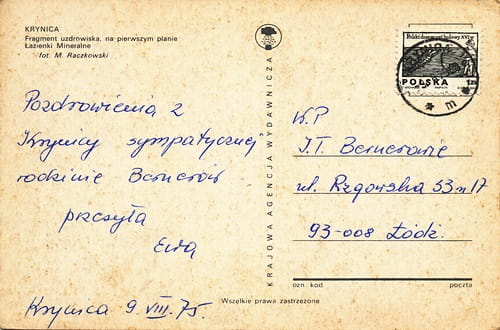 KRYNICA
Fragment uzdrowiska, na pierwszym planie
Łazienki Mineralne
fot. M. Raczkowski
Pozdrowienia z
Krynicy sympatycznej
rodzinie Bernerów
przesyła
Ewa
Krynica 9.VIII.75.
KRAJOWA AGENCJA WYDAWNICZA
POLSKA
W.P
J.T. Bernerowie
ul. Rzgowska 53 m 17
93-008 Łódź.
ozn. kod
poczta
Wszelkie prawa zastrzeżone